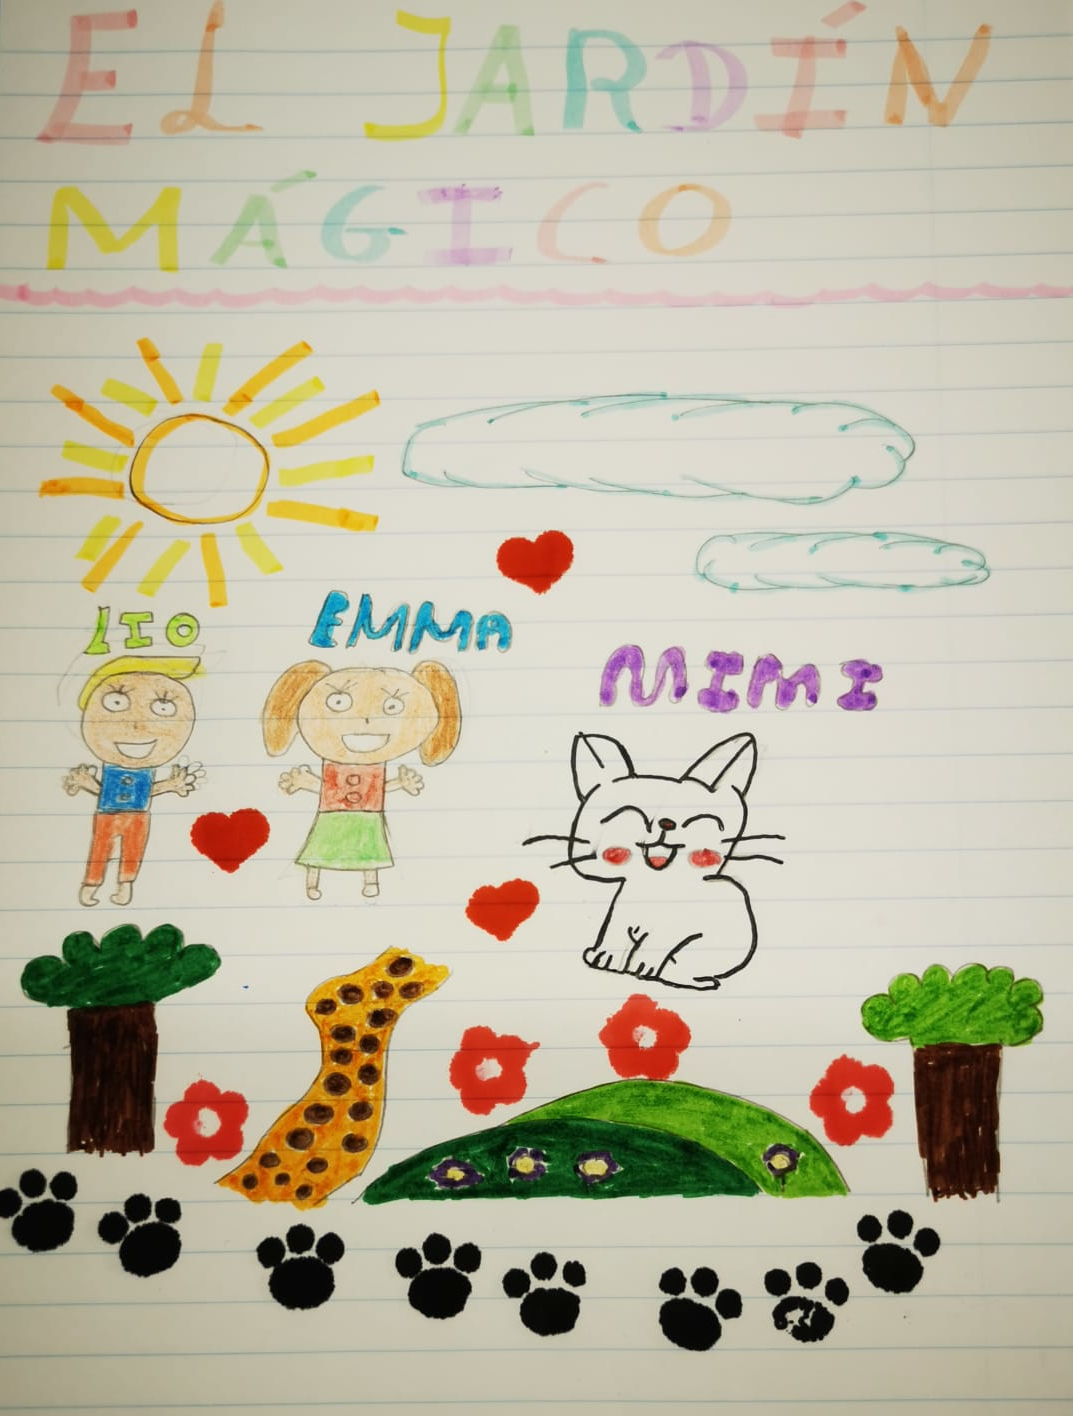 EL JARDÍN
MÁGICO
LIO
EMMA
MIMI